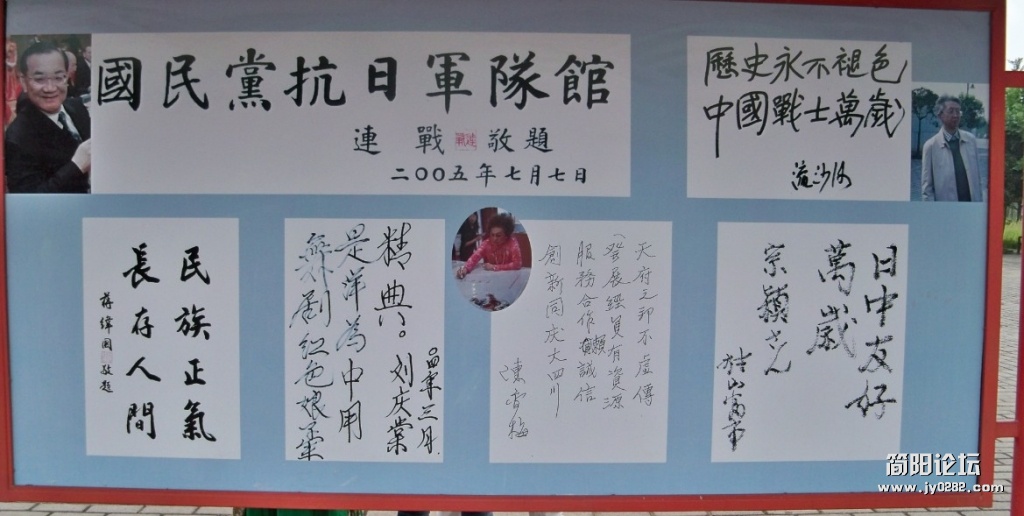 國民黨抗日軍隊館
連戰 敬題
二〇〇五年七月七日
歷史永不褪色
中國戰士萬歲
流沙河
民族正氣
長存人間
蔣緯國 敬題
精典！。
是洋為中用
舞劇红色娘子軍
刘庆棠
〇四年三月
天府之邦不虛傳
發展經貿有資源
服務合作 誠信
創新同庆大四川
陳香梅
日中友好
萬歲
宗鎮さん
简阳论坛
www.jy0282.com